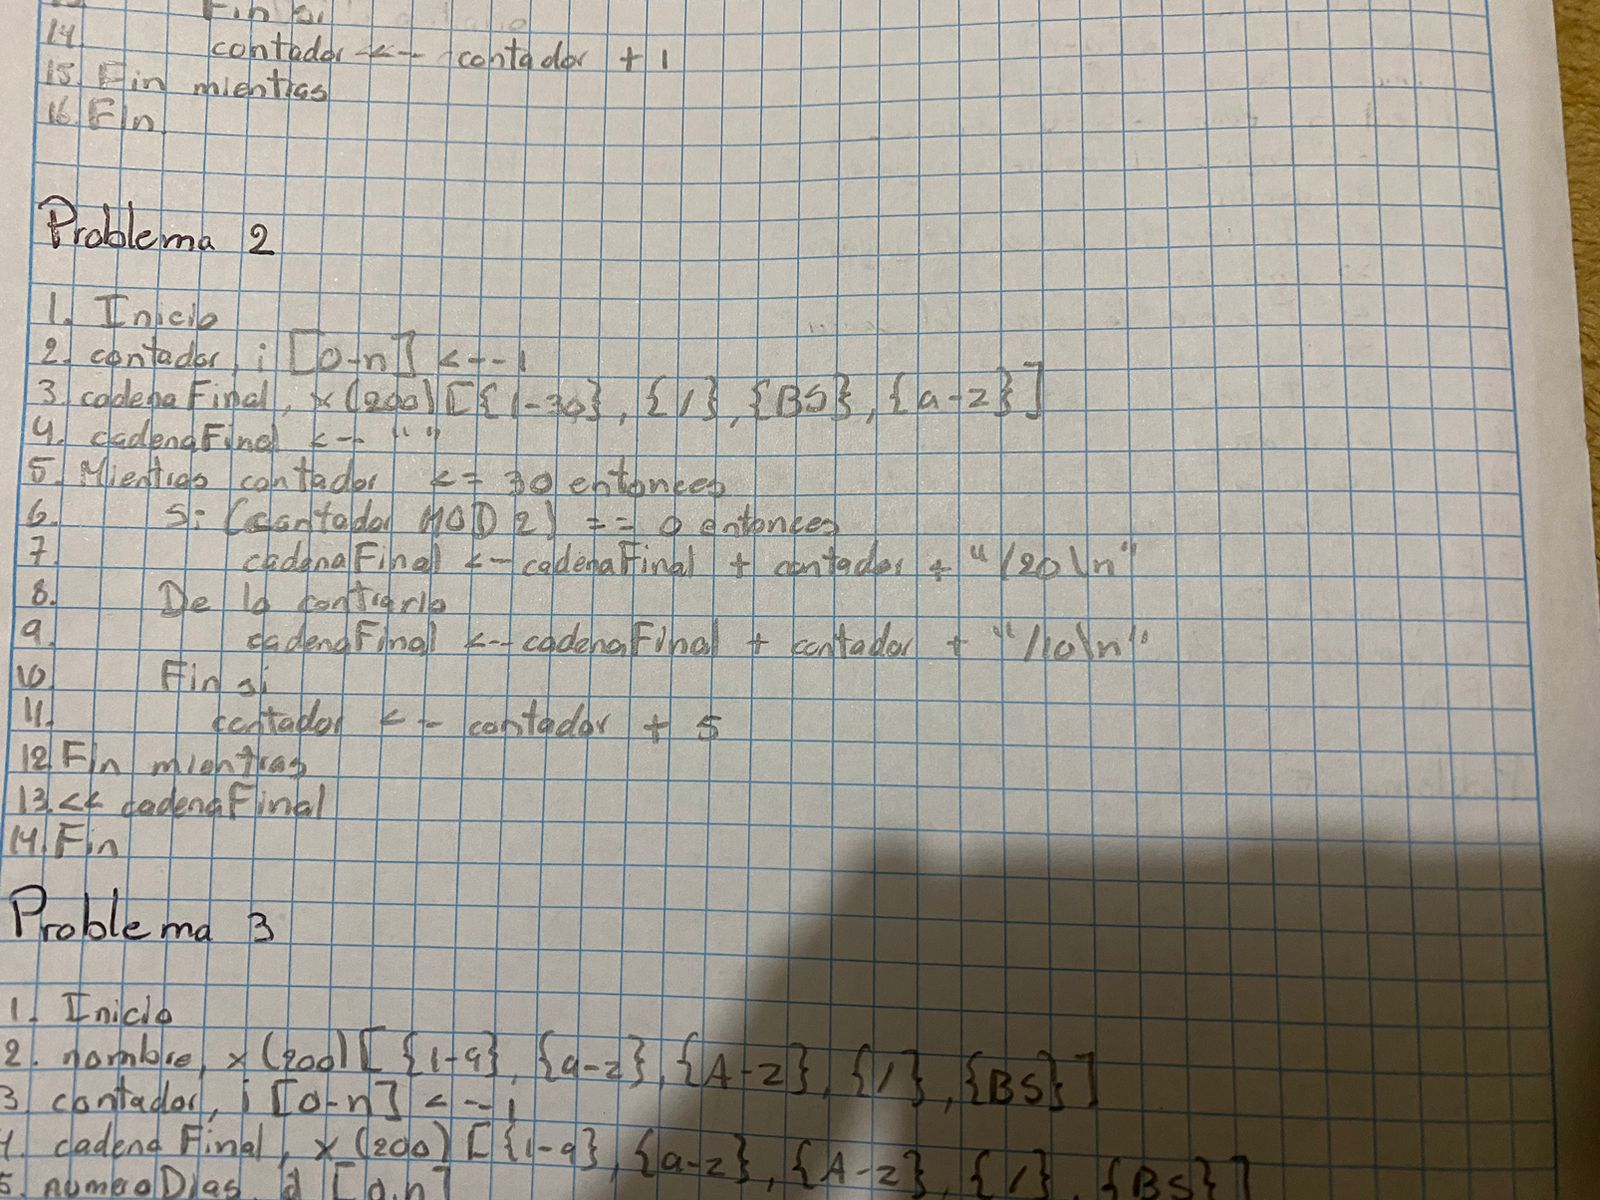 Fin si
14 contador <-- contador + 1
15. Fin mientras
16. Fin
Problema 2
1. Inicio
2. contador, i [0-n] <--1
3. cadenaFinal, x(200)[{1-30}, {/}, {BS}, {a-z}]
4. cadenaFinal <-- " "
5. Mientras contador <= 30 entonces
6. Si (contador MOD 2) == 0 entonces
7. cadenaFinal <-- cadenaFinal + contador + "/20\n"
8. De lo contrario
9. cadenaFinal <-- cadenaFinal + contador + "/10\n"
10 Fin si
11. contador <-- contador + 5
12. Fin mientras
13. << cadenaFinal
14. Fin
Problema 3
1. Inicio
2. nombre, x(200)[{1-9}, {a-z}, {A-Z}, {/}, {BS}]
3. contador, i [0-n] <--1
4. cadena Final, x(200)[{1-9}, {a-z}, {A-Z}, {/}, {BS}]
5. Dias, [0,n]